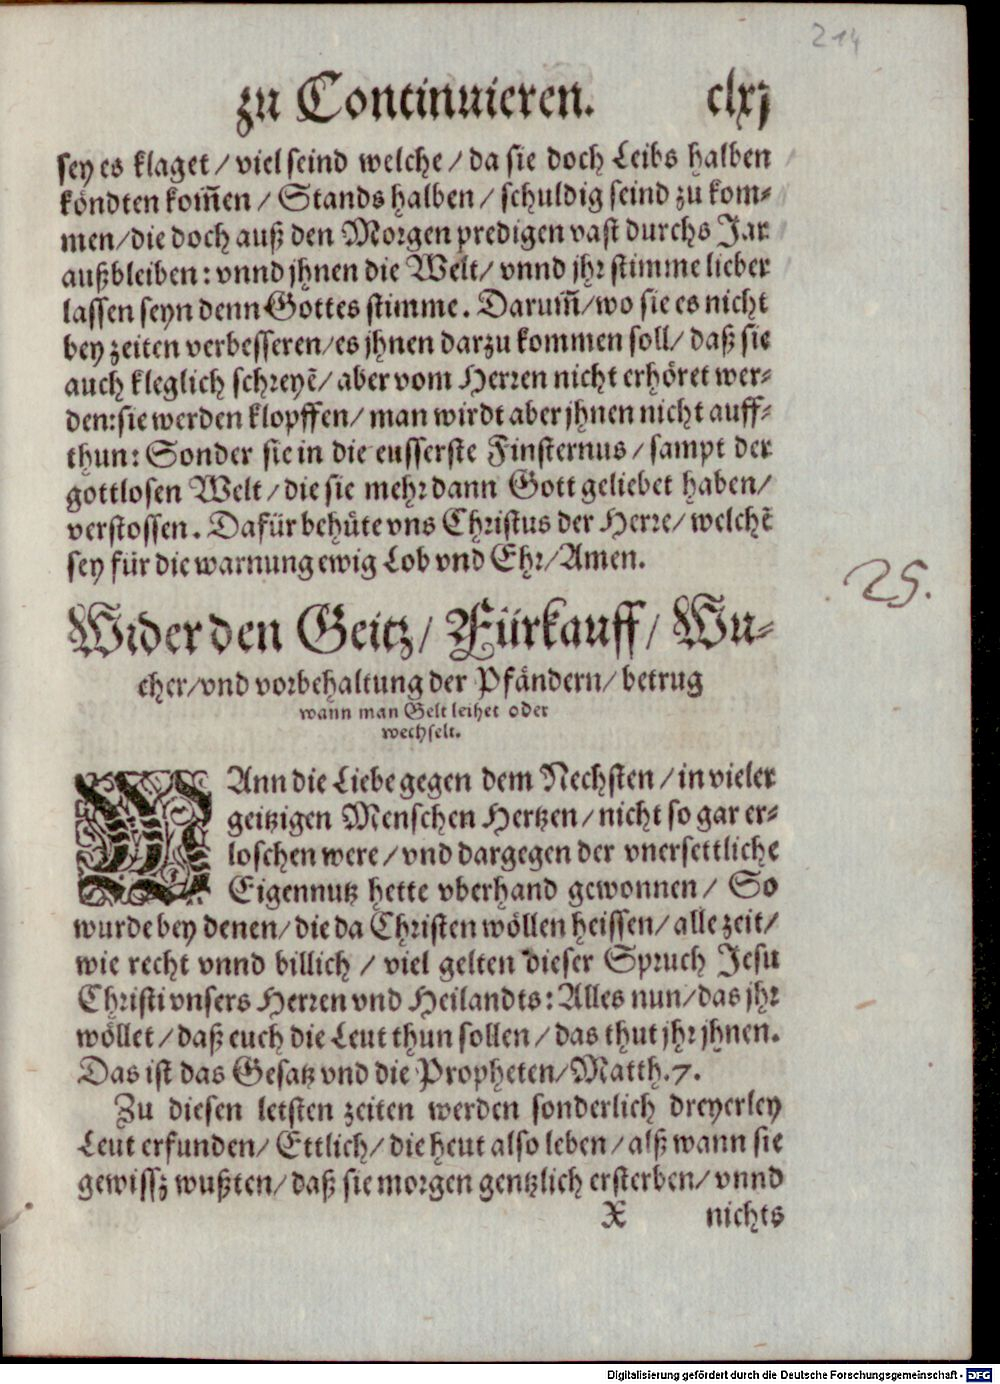 214
zu Continuieren. clxj
sey es klaget / viel seind welche / da sie doch Leibs halben
köndten kom̃en / Stands halben / schuldig seind zu kom-
men / die doch auß den Morgen predigen vast durchs Jar
außbleiben: vnnd jhnen die Welt / vnnd jhr stimme lieber
lassen seyn denn Gottes stimme. Darum̃ / wo sie es nicht
bey zeiten verbesseren / es jhnen darzu kommen soll / daß sie
auch kleglich schreyẽ / aber vom Herren nicht erhöret wer-
den: sie werden klopffen / man wirdt aber jhnen nicht auff-
thun: Sonder sie in die eusserste Finsternus / sampt der
gottlosen Welt / die sie mehr dann Gott geliebet haben /
verstossen. Dafür behüte vns Christus der Herre / welchẽ
sey für die warnung ewig Lob vnd Ehr / Amen.
25.
Wider den Geitz / Fürkauff / Wu-
cher / vnd vorbehaltung der Pfändern / betrug
wann man Gelt leihet oder
wechselt.
WAnn die Liebe gegen dem Nechsten / in vieler
geitzigen Menschen Hertzen / nicht so gar er-
loschen were / vnd dargegen der vnersettliche
Eigennutz hette vberhand gewonnen / So
wurde bey denen / die da Christen wöllen heissen / alle zeit /
wie recht vnnd billich / viel gelten dieser Spruch Jesu
Christi vnsers Herren vnd Heilandts: Alles nun / das jhr
wöllet / daß euch die Leut thun sollen / das thut jhr jhnen.
Das ist das Gesatz vnd die Propheten / Matth. 7.
Zu diesen letsten zeiten werden sonderlich dreyerley
Leut erfunden / Ettlich / die heut also leben / alß wann sie
gewissz wußten / daß sie morgen gentzlich ersterben / vnnd
X nichts
Digitalisierung gefördert durch die Deutsche Forschungsgemeinschaft - DFG